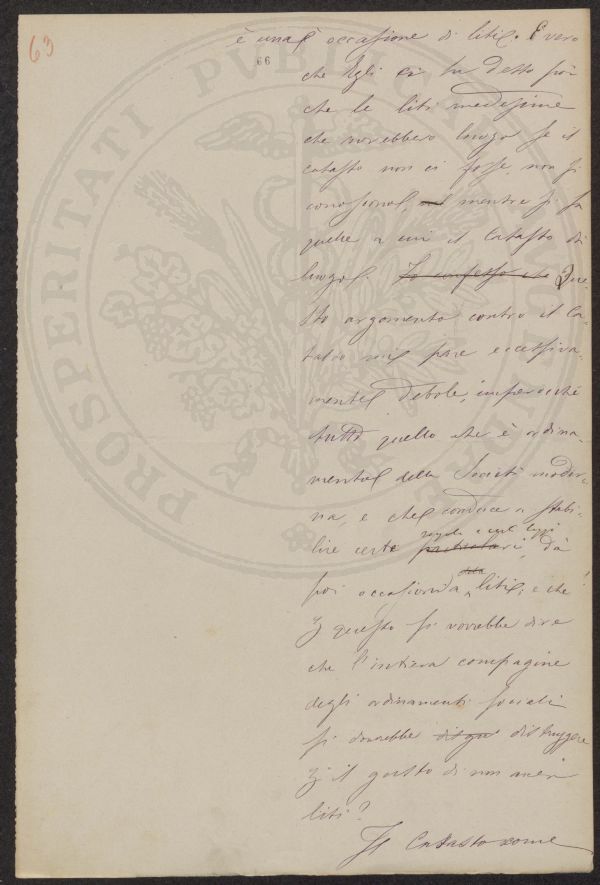 63
è una occasione di liti. È vero
66
che Egli ci ha detto poi
che le liti medesime
che avrebbero luogo se il
catasto non ci fosse, non si
conoscono, mentre si sa
quelle a cui il Catasto dà
luogo. Io confesso che Que-
sto argomento contro il Ca-
tasto mi pare eccessiva-
mente debole, imperocché
tutto quello che è ordina-
mento della Società moder-
na, e che conduce a stabi-
lire certe regole e certe leggi, dà
poi occasione a liti; e che!
questo si vorrebbe dire
che l'intiera compagine
degli ordinamenti sociali
si dovrebbe distruggere
il gusto di non aver
liti?
Il Catasto come
PROSPERITATI PVBLICAE